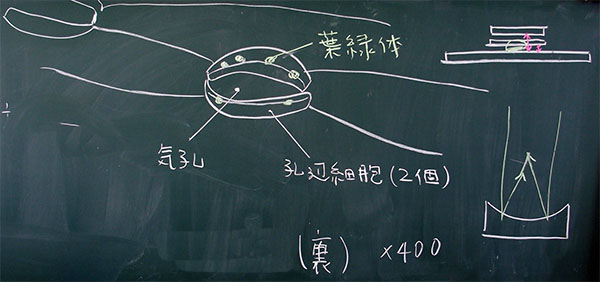 葉緑体
気孔
孔辺細胞(2個)
(裏) ×400